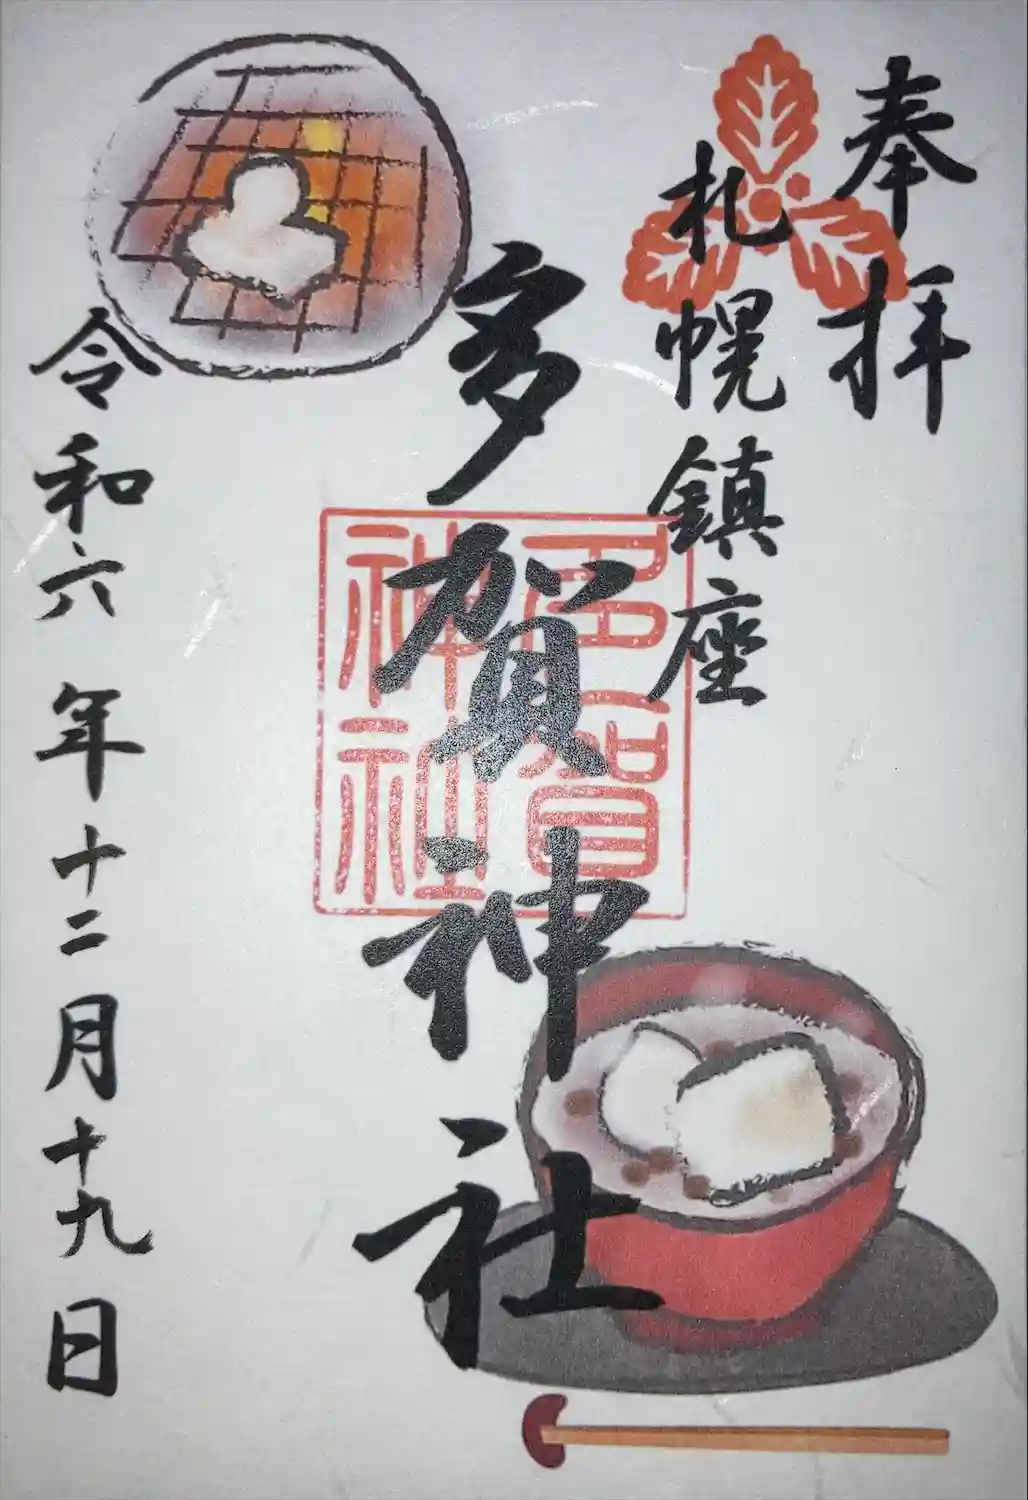 奉拝
札幌鎮座
多賀神社
多賀神社
令和六年十二月十九日